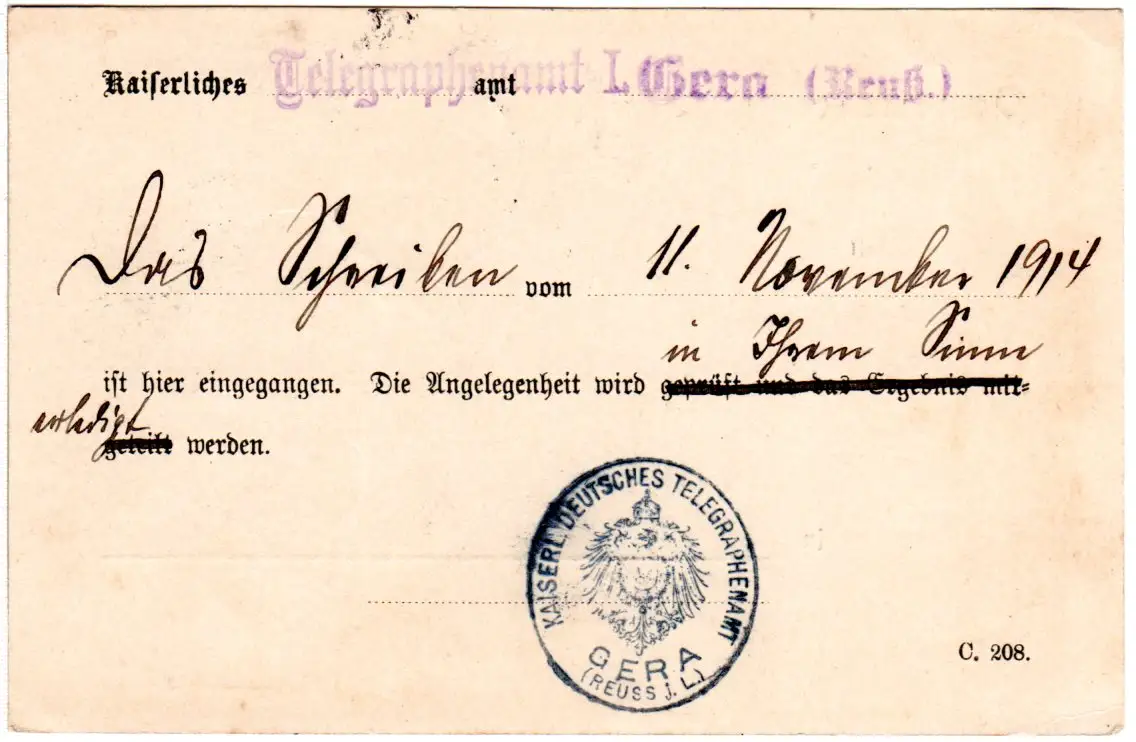 Kaiserliches Telegraphenamt I. Gera (Reuß.) amt
Das Schreiben vom 11. November 1914
in Ihrem Sinn
ist hier eingegangen. Die Angelegenheit wird geprüft und das Ergebnis mit-
erledigt
geteilt werden.
KAISERL. DEUTSCHES TELEGRAPHENAMT
GERA
(REUSS j. L.)
C. 208.